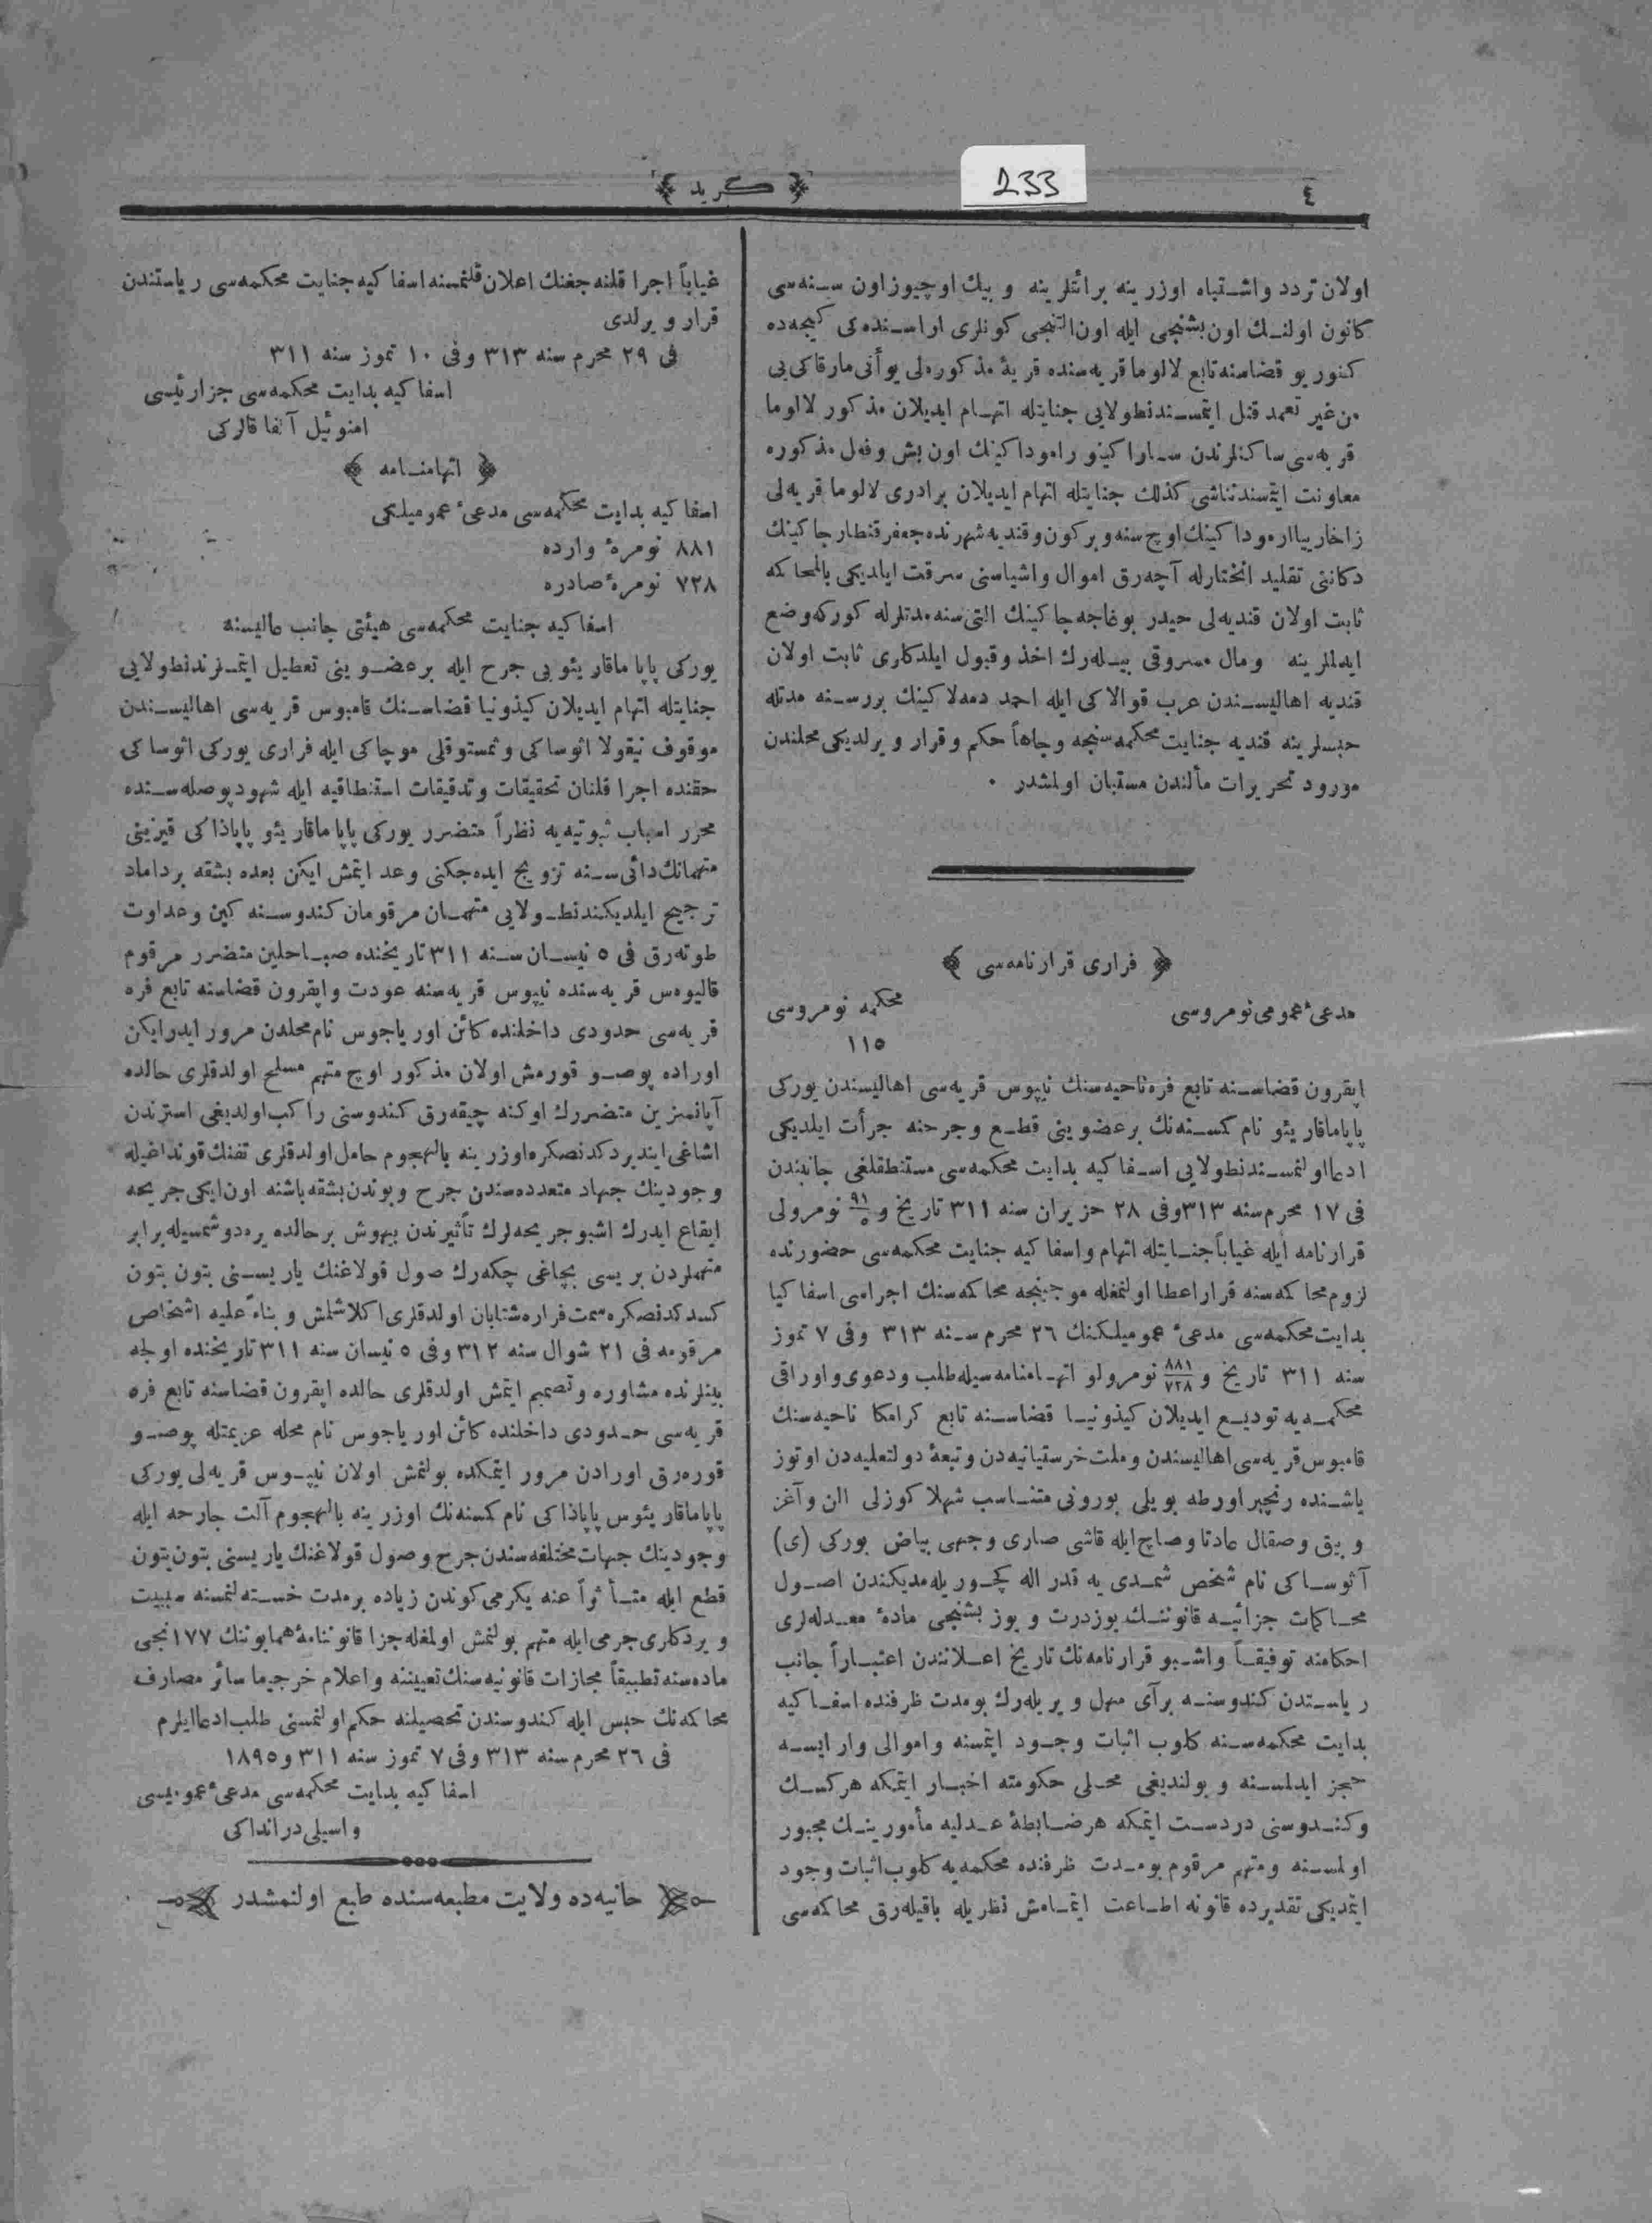 ٤
233
﴿ كريد ﴾
اولان تردد واشتباه اوزرينه برائتلرينه و بيك اوچيوز اون سنه‌سى
كانون اولنك اون بشنجى ايله اون التنجى كونلرى اراسنده كى كيجه‌ده
كنوريو قضاسنه تابع لالوما قريه‌سنده قريۀ مذكوره‌لى يوأنى مارقاكى يى
من غير تعمد قتل ايتمسندنطولايى جنايتله اتهام ايديلان مذكور لالوما
قريه‌سى ساكنلرندن ساراكينو راموداكينك اون بش و فعل مذكوره
معاونت ايتمسندناشى كذلك جنايتله اتهام ايديلان برادرى لالوما قريه‌لى
زاخارييا راموداكينك اوچ سنه و بر كون و قنديه شهرنده جعفر قنطارجاكينك
دكاننى تقليد انختارله آچه‌رق اموال واشياسنى سرقت ايلديكى بالمحاكمه
ثابت اولان قنديه‌لى حيدر بوغاجه‌جاكينك التى سنه مدتلرله كوركه وضع
ايدلملرينه و مال مسروقى بيله‌رك اخذ و قبول ايلدكلرى ثابت اولان
قنديه اهاليسندن عرب قوالاكى ايله احمد دمه‌لاكينك برر سنه مدتله
حبسلرينه قنديه جنايت محكمه‌سنجه وجاهاً حكم و قرار ويرلديكى محلندن
مورود تحريرات مألندن مستبان اولمشدر ٠
﴿ فرارى قرارنامه‌سى ﴾
مدعئ عمومى نومروسى محكمه نومروسى
١١٥
اپقرون قضاسنه تابع فره ناحيه‌سنك نيپوس قريه‌سى اهاليسندن يوركى
پاپاماقاريئو نام كمسنه‌نك بر عضوينى قطع و جرحنه جرأت ايلديكى
ادعا اولنمسندنطولايى اسفاكيه بدايت محكمه‌سى مستنطقلغى جانبندن
فى ١٧ محرم سنه ٣١٣ وفى ٢٨ حزيران سنه ٣١١ تاريخ و ٩١/٥ نومرولى
قرارنامه ايله غياباً جنايتله اتهام واسفاكيه جنايت محكمه‌سى حضورنده
لزوم محاكمه‌سنه قرار اعطا اولنمغله موجبنجه محاكمه‌سنك اجراسى اسفاكيا
بدايت محكمه‌سى مدعئ عموميلكنك ٢٦ محرم سنه ٣١٣ وفى ٧ تموز
سنه ٣١١ تاريخ و ٨٨١/٧٢٨ نومرولو اتهامنامه‌سيله طلب ودعوى واوراقى
محكمه‌يه توديع ايديلان كيذونيا قضاسنه تابع كرامكا ناحيه‌سنك
قامبوس قريه‌سى اهاليسندن وملت خرستيانيه‌دن و تبعۀ دولتعليه‌دن اوتوز
ياشنده رنچبر اورطه بويلى بورونى متناسب شهلا كوزلى الن وآغز
وبيق وصقال عادتا وصاچ ايله قاشى صارى وجهى بياض يوركى (ى)
آئوساكى نام شخص شمدى يه قدر اله كچوريله‌مديكندن اصول
محاكمات جزائيه قانوننك يوزدرت و يوز بشنجى مادۀ معدله‌لرى
احكامنه توفيقاً واشبو قرارنامه‌نك تاريخ اعلانندن اعتباراً جانب
رياستدن كندوسنه برآى مهل ويريله‌رك بو مدت ظرفنده اسفاكيه
بدايت محكمه‌سنه كلوب اثبات وجود ايتمسنه واموالى وار ايسه
حجز ايدلمسنه و بولنديغى محلى حكومته اخبار ايتمكه هركسك
وكندوسنى دردست ايتمكه هر ضابطۀ عدليه مأمورينك مجبور
اولمسنه ومتهم مرقوم بو مدت ظرفنده محكمه‌يه كلوب اثبات وجود
ايتمديكى تقديرده قانونه اطاعت ايتمامش نظريله باقيله‌رق محاكمه‌سى
غياباً اجرا قلنه‌جغنك اعلان قلنمسنه اسفاكيه جنايت محكمه‌سى رياستندن
قرار ويرلدى
فى ٢٩ محرم سنه ٣١٣ وفى ١٠ تموز سنه ٣١١
اسفاكيه بدايت محكمه‌سى جزا رئيسى
امنوئيل آلفاقالركى
﴿ اتهامنامه ﴾
اسفاكيه بدايت محكمه‌سى مدعئ عموميلكى
٨٨١ نومرۀ وارده
٧٢٨ نومرۀ صادره
اسفاكيه جنايت محكمه‌سى هيئتى جانب عاليسنه
يوركى پاپاماقاريئويى جرح ايله بر عضوينى تعطيل ايتملرندنطولايى
جنايتله اتهام ايديلان كيذونيا قضاسنك قامبوس قريه‌سى اهاليسندن
موقوف نيقولا ائوساكى و ثمستوقلى موچاكى ايله فرارى يوركى ائوساكى
حقنده اجرا قلنان تحقيقات و تدقيقات استنطاقيه ايله شهود پوصله‌سنده
محرر اسباب ثبوتيه‌يه نظراً متضرر يوركى پاپاماقاريئو پاپاذاكى قيزينى
متهمانك دائى‌سنه تزويج ايده‌جكنى وعد ايتمش ايكن بعده بشقه بر داماد
ترجيح ايلديكندنطولايى متهمان مرقومان كندوسنه كين وعداوت
طوته‌رق فى ٥ نيسان سنه ٣١١ تاريخنده صباحلين متضرر مرقوم
قاليوس قريه‌سنده نيپوس قريه‌سنه عودت واپقرون قضاسنه تابع فره
قريه‌سى حدودى داخلنده كائن اورياجوس نام محلدن مرور ايدرايكن
اوراده پوصو قورمش اولان مذكور اوچ متهم مسلح اولدقلرى حالده
آپانسزين متضررك اوكنه چيقه‌رق كندوسنى راكب اولديغى استرندن
اشاغى اينديردكدنصكره اوزرينه بالهجوم حامل اولدقلرى تفنك قونداغيله
وجودينك جهاد متعدده‌سندن جرح و بوندن بشقه باشنه اون ايكى جريحه
ايقاع ايدرك اشبو جريحه‌لرك تأثيرندن بيهوش بر حالده يره دوشمسيله برابر
متهملردن بريسى بچاغى چكه‌رك صول قولاغنك ياريسنى بتون بتون
كسدكدنصكره سمت فراره شتابان اولدقلرى اكلاشلمش و بناءً عليه اشخاص
مرقومه فى ٢١ شوال سنه ٣١٢ وفى ٥ نيسان سنه ٣١١ تاريخنده اولجه
بينلرنده مشاوره وتصميم ايتمش اولدقلرى حالده اپقرون قضاسنه تابع فره
قريه‌سى حدودى داخلنده كائن اورياجوس نام محله عزيمتله پوصو
قوره‌رق اورادن مرور ايتمكده بولنمش اولان نيپوس قريه‌لى يوركى
پاپاماقاريئوس پاپاذاكى نام كمسنه‌نك اوزرينه بالهجوم آلت جارحه ايله
وجودينك جهات مختلفه‌سندن جرح وصول قولاغنك ياريسنى بتون بتون
قطع ايله متأثراً عنه يكرمى كوندن زياده بر مدت خسته‌لنمسنه سببيت
ويردكلرى جرمى ايله متهم بولنمش اولمغله جزا قانوننامۀ همايوننك ١٧٧ نجى
ماده‌سنه تطبيقاً مجازات قانونيه‌سنك تعييننه واعلام خرجيما سائر مصارف
محاكمه‌نك حبس ايله كندوسندن تحصيلنه حكم اولنمسنى طلب ادعا ايلرم
فى ٢٦ محرم سنه ٣١٣ وفى ٧ تموز سنه ٣١١ و ١٨٩٥
اسفاكيه بدايت محكمه‌سى مدعئ عموميسى
واسيلى درانداكى
حانيه‌ده ولايت مطبعه‌سنده طبع اولنمشدر